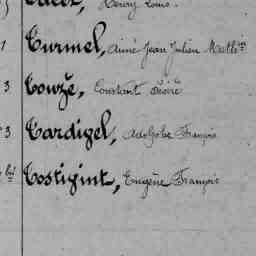 Henry Louis.
1 Turmel, Aimé Jean Julien Math
3 Touzé, Constant Désiré
3 Tardivel, Adolphe François
bis Tostivint, Eugène François